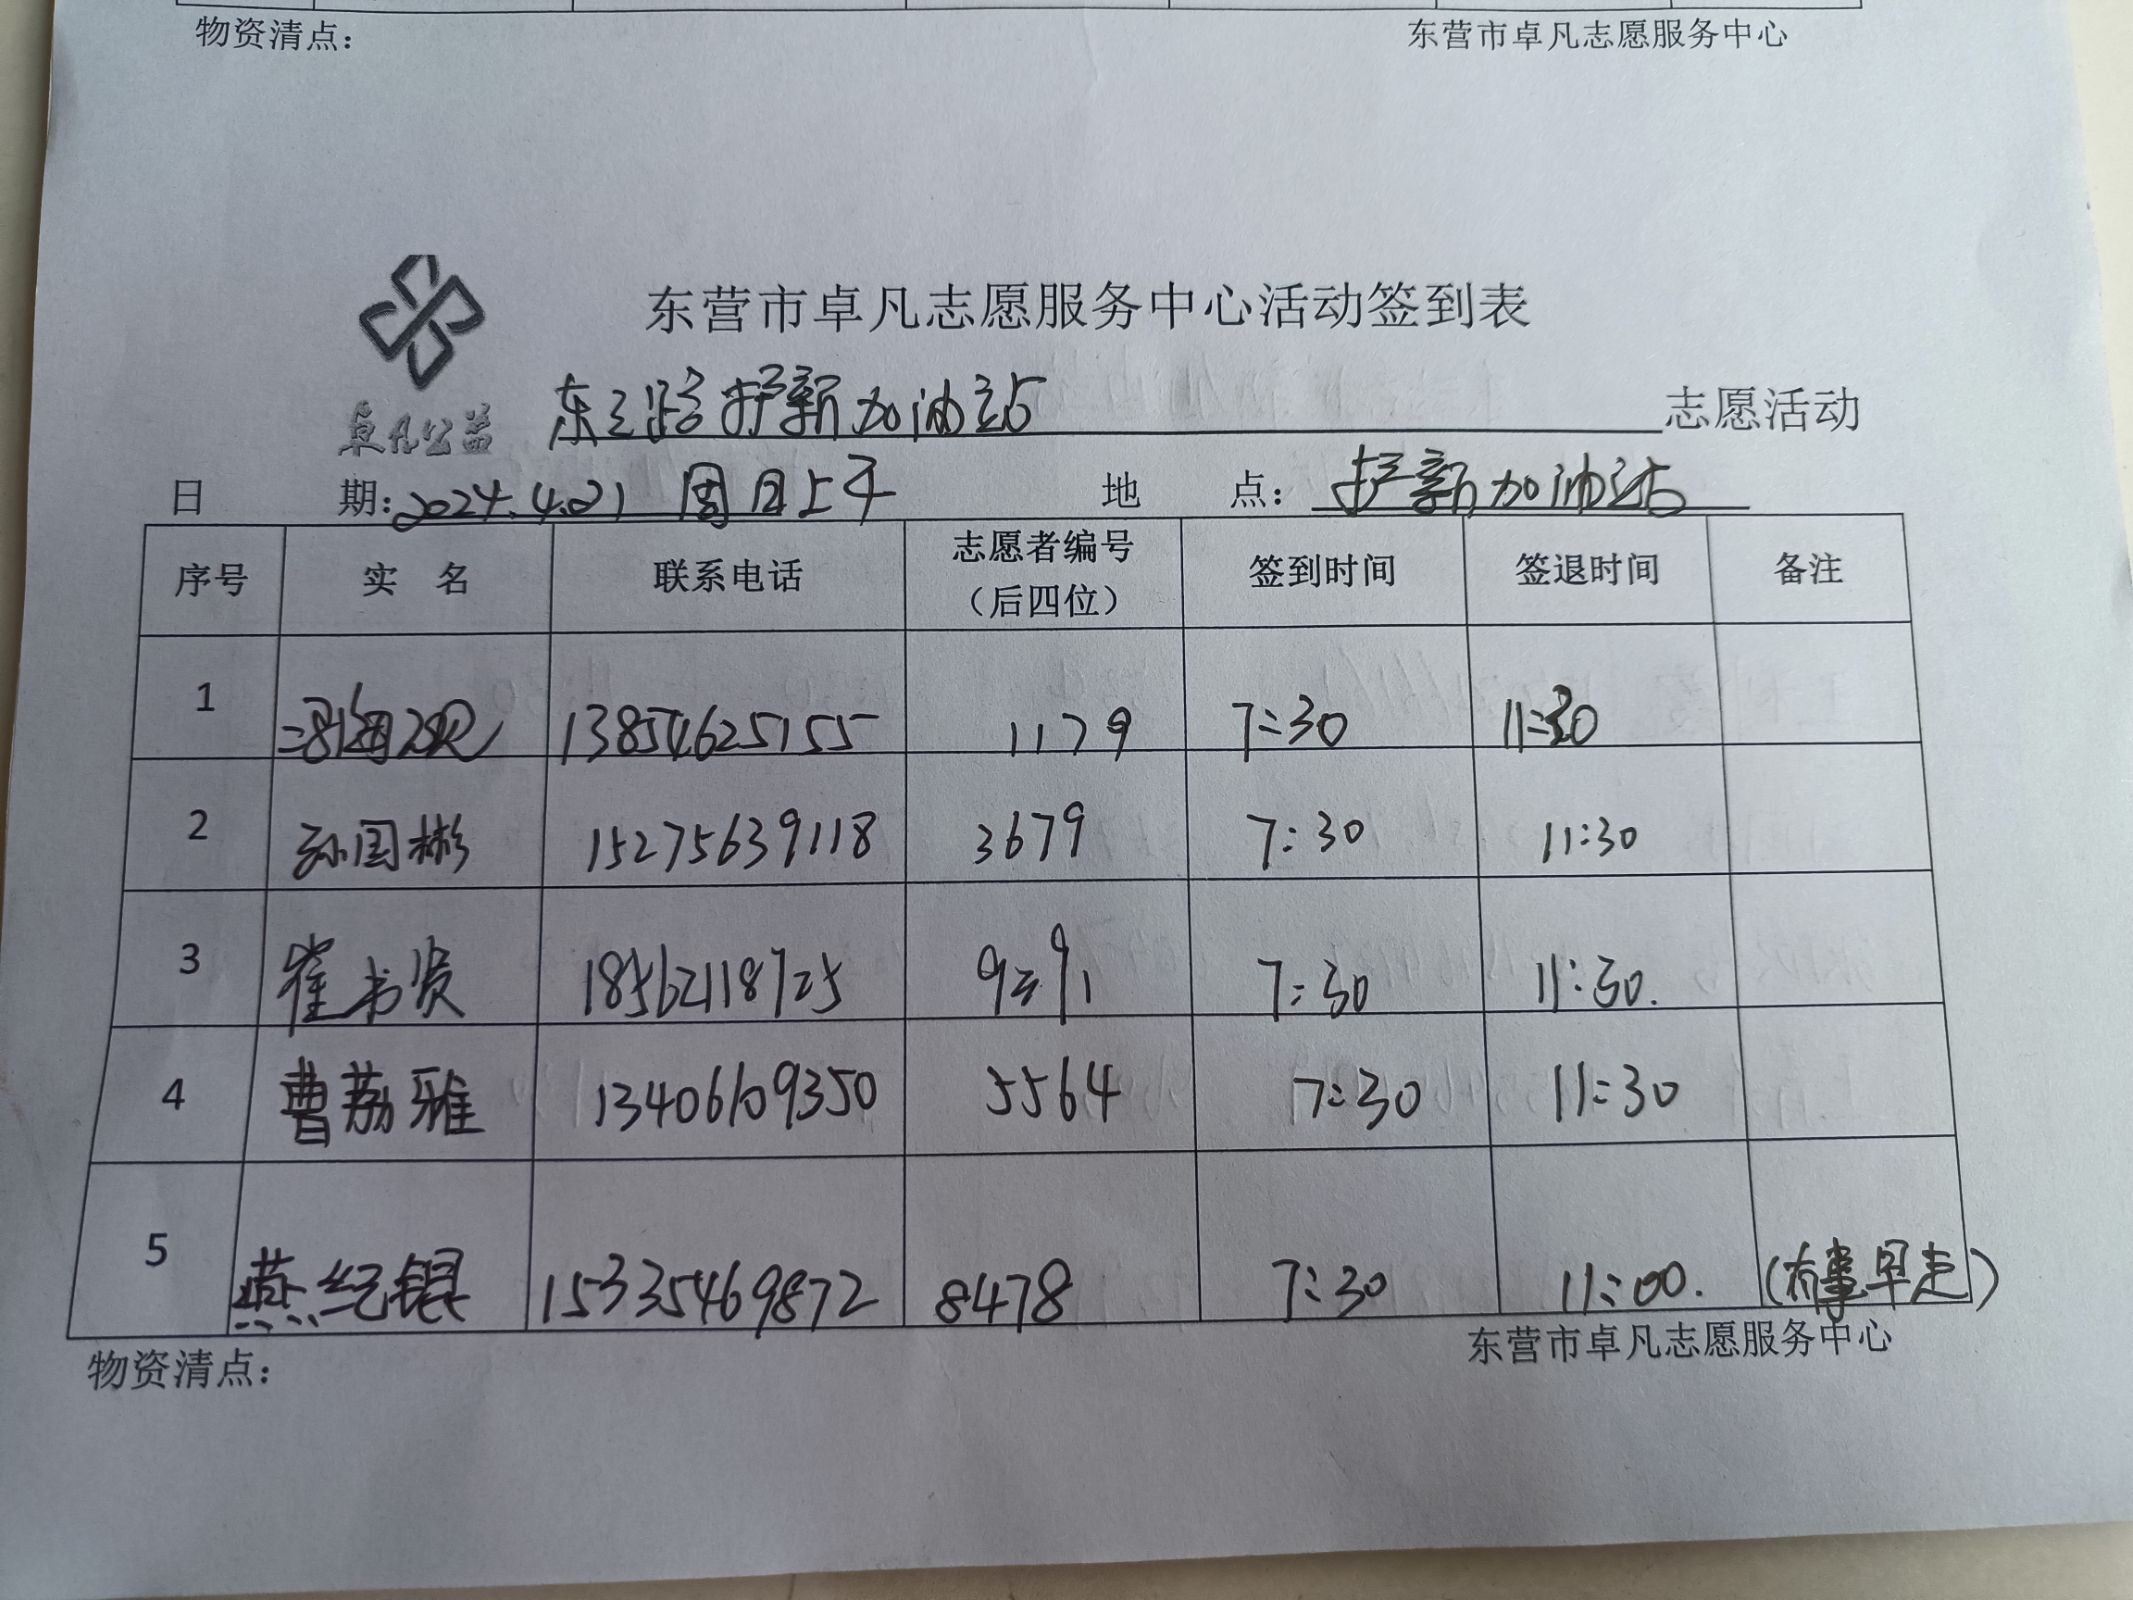 物资清点： 东营市卓凡志愿服务中心
东营市卓凡志愿服务中心活动签到表
卓凡公益 东三路护新加油站 志愿活动
日 期：2024.4.21 周日上午 地 点：护新加油站
序号 实 名 联系电话 志愿者编号（后四位） 签到时间 签退时间 备注
1 13854625155 1179 7:30 11:30
2 孙国彬 15275639118 3679 7:30 11:30
3 崔书贤 18562118725 7:30 11:30.
4 曹荔雅 13406109350 5564 7:30 11:30
5 燕纪锟 15335469872 8478 7:30 11:00. （有事早走）
物资清点： 东营市卓凡志愿服务中心